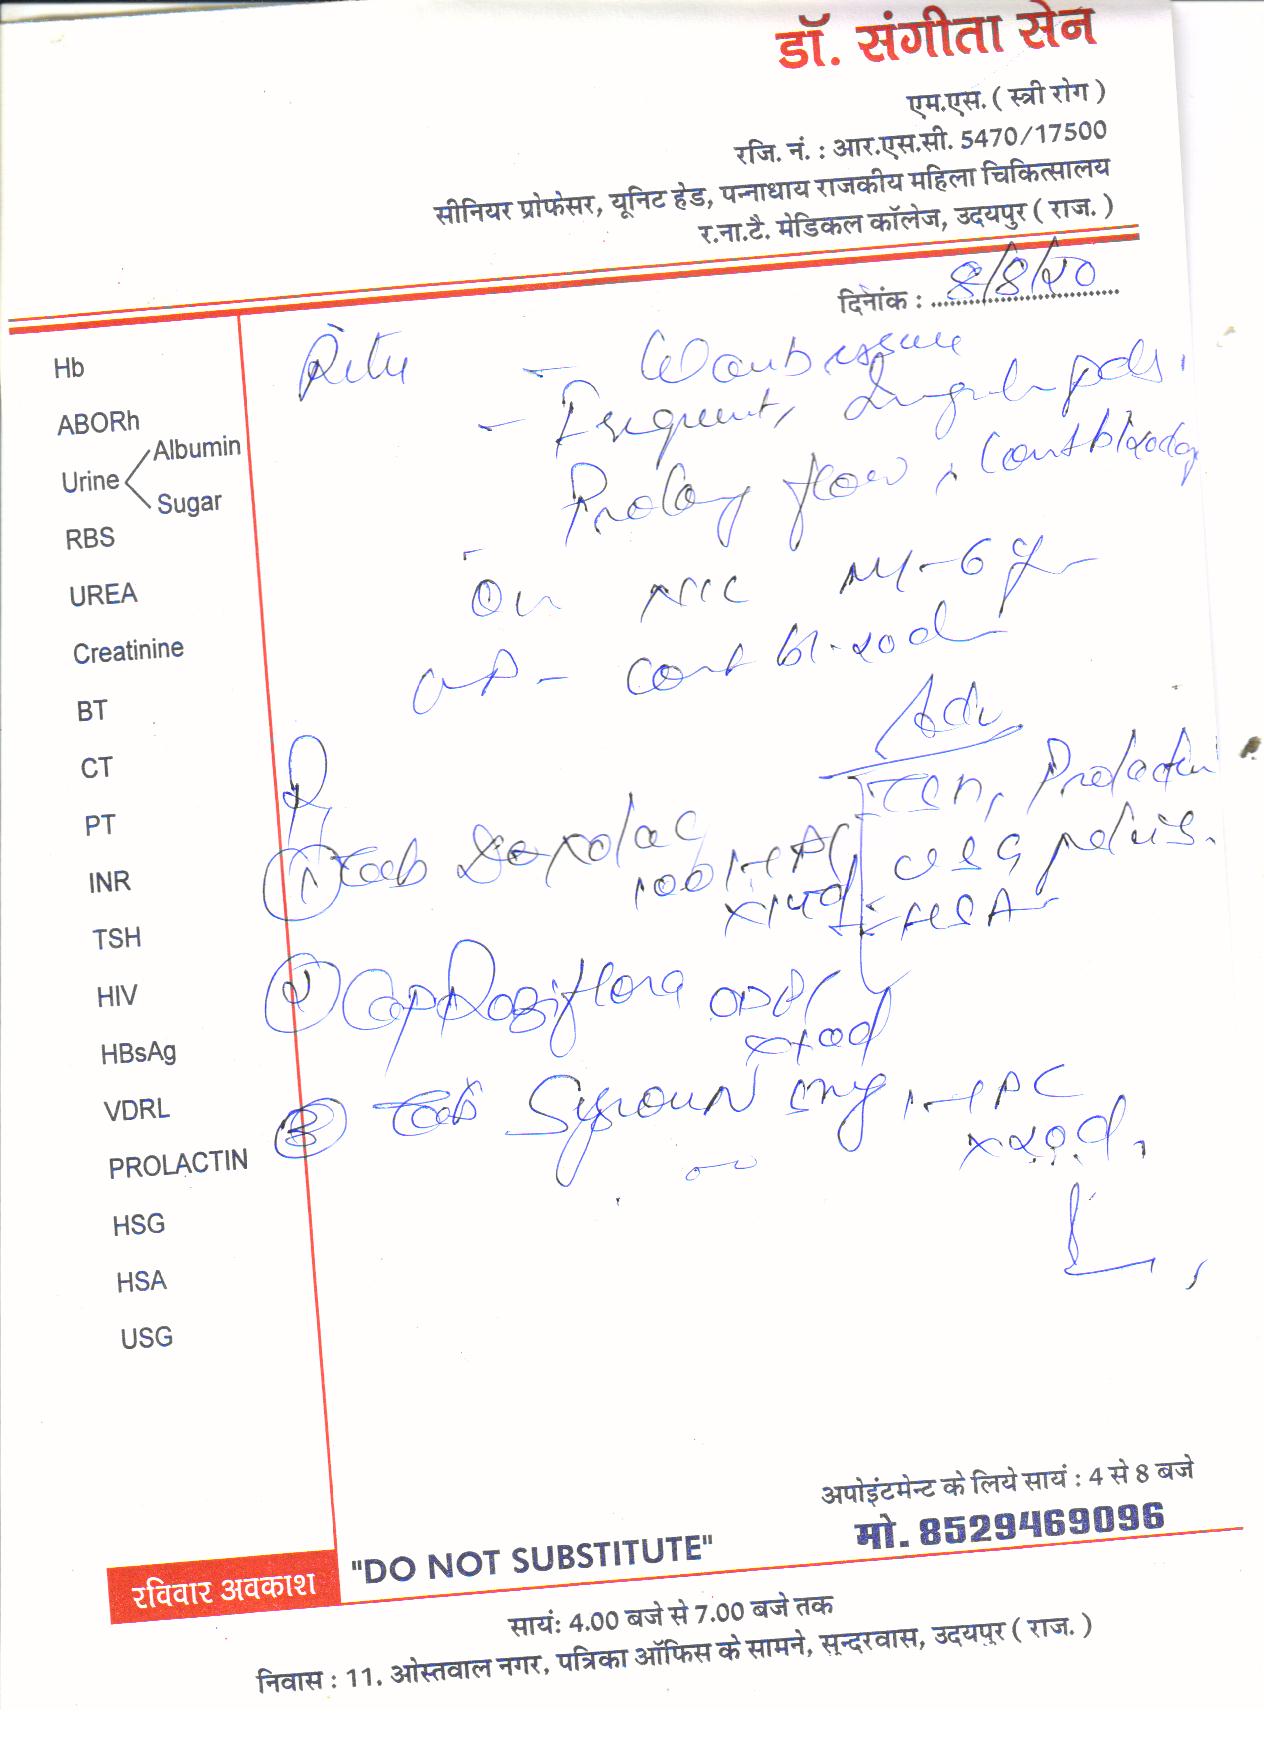 डॉ. संगीता सेन
एम.एस. ( स्त्री रोग )
रजि. नं. : आर.एस.सी. 5470/17500
सीनियर प्रोफेसर, यूनिट हेड, पन्नाधाय राजकीय महिला चिकित्सालय
र.ना.टै. मेडिकल कॉलेज, उदयपुर ( राज. )
दिनांक : 8/8/20
Hb
ABORh
Urine
Albumin
Sugar
RBS
UREA
Creatinine
BT
CT
PT
INR
TSH
HIV
HBsAg
VDRL
PROLACTIN
HSG
HSA
USG
Ritu - Wants issue
- Frequent,
Prolong flow,
On
Adv
TSH, Prolactin
USG pelvis.
HSA
① Tab 100 1-1 PC
x
② Cap OD PC
x10d
③ Tab 1-1 PC
x20d
अपोइंटमेन्ट के लिये सायं : 4 से 8 बजे
मो. 8529469096
रविवार अवकाश
"DO NOT SUBSTITUTE"
सायं: 4.00 बजे से 7.00 बजे तक
निवास : 11. ओस्तवाल नगर, पत्रिका ऑफिस के सामने, सुन्दरवास, उदयपुर ( राज. )